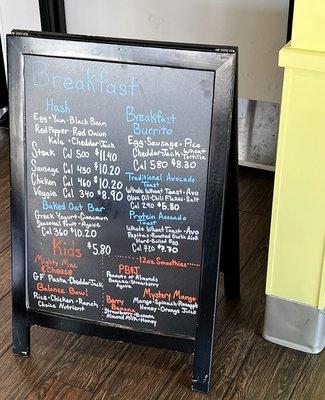 Breakfast
Hash
Egg • Yam • Black Bean
Red Pepper • Red Onion
Kale • Cheddar • Jack
Steak Cal 500 $11.40
Sausage Cal 430 $10.20
Chicken Cal 460 $10.20
Veggie Cal 340 $8.90
Baked Oat Bar
Greek Yogurt • Cinnamon
Seasonal Fruit • Agave
Cal 360 $10.20
Breakfast
Burrito
Egg • Sausage • Pico
Cheddar • Jack • Wheat
Tortilla
Cal 580 $8.30
Traditional Avocado
Toast
Whole Wheat Toast • Avo
Olive Oil • Chili Flakes • Salt
Cal 240 $5.80
Protein Avocado
Toast
Whole Wheat Toast • Avo
Pepitas • Roasted Garlic Aioli
Hard-Boiled Egg
Cal 320 $7.70
Kids $5.80
Mighty Mac
& Cheese
GF Pasta • Cheddar • Jack
Balance Bowl
Rice • Chicken • Ranch
Choice Nutrient
12oz Smoothies
PB&J
Peanuts or Almonds
Banana • Strawberry
Agave
Berry
Banana
Strawberry • Banana
Almond Milk • Honey
Mystery Mango
Mango • Spinach • Pineapple
Honey • Orange Juice